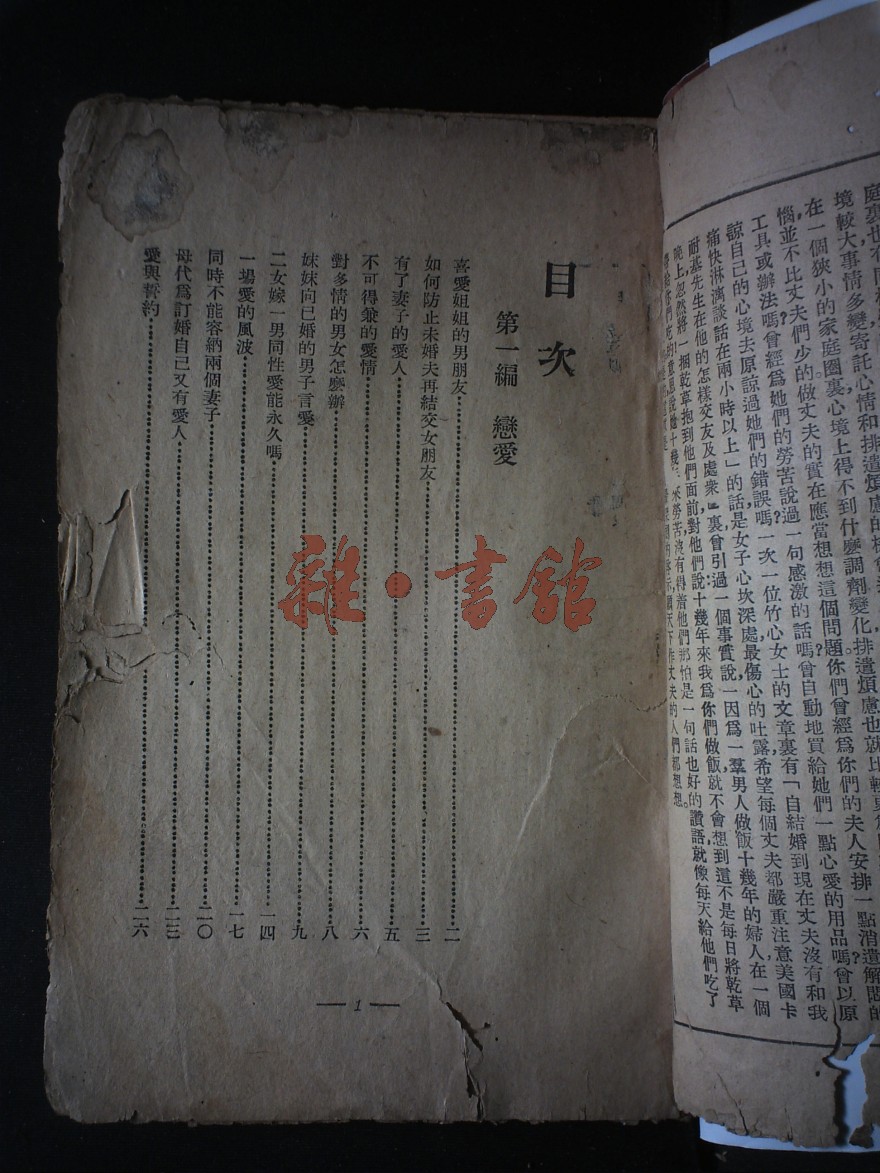 庭裏也不
境較大事情多變寄託心情和排遣煩慮的
在一個狹小的家庭圈裏心境上得不到什麽調劑變化排遣煩慮也就比較更
惱並不比丈夫們少的做丈夫的實在應當想想這個問題你們曾經爲你們的夫人安排一點消遣解悶的
工具或辦法嗎曾經爲她們的勞苦說過一句感激的話嗎曾自動地買給她們一點心愛的用品嗎曾以原
諒自己的心境去原諒過她們的錯誤嗎一次一位竹心女士的文章裏有「自結婚到現在丈夫沒有和我
痛快淋漓談話在兩小時以上」的話是女子心坎深處最傷心的吐露希望每個丈夫都嚴重注意美國卡
耐基先生在他的怎樣交友及處衆裏曾引過一個事實說一因爲一羣男人做飯十幾年的婦人在一個
晚上忽然將一捆乾草抱到他們面前對他們說十幾年來我爲你們做飯就不會想到這不是每日將乾草
勞苦沒有得着他們那怕是一句話也好的讚語就像每天給他們吃了
天下作丈夫的人們都想想。
目次
第一編 戀愛
喜愛姐姐的男朋友 二
如何防止未婚夫再結交女朋友 三
有了妻子的愛人 五
不可得兼的愛情 六
對多情的男女怎麽辦 八
妹妹向已婚的男子言愛 九
二女嫁一男同性愛能永久嗎 一四
一場愛的風波 一七
同時不能容納兩個妻子 二〇
母代爲訂婚自己又有愛人 二三
愛與誓約 二六
— 1 —
雜·書館